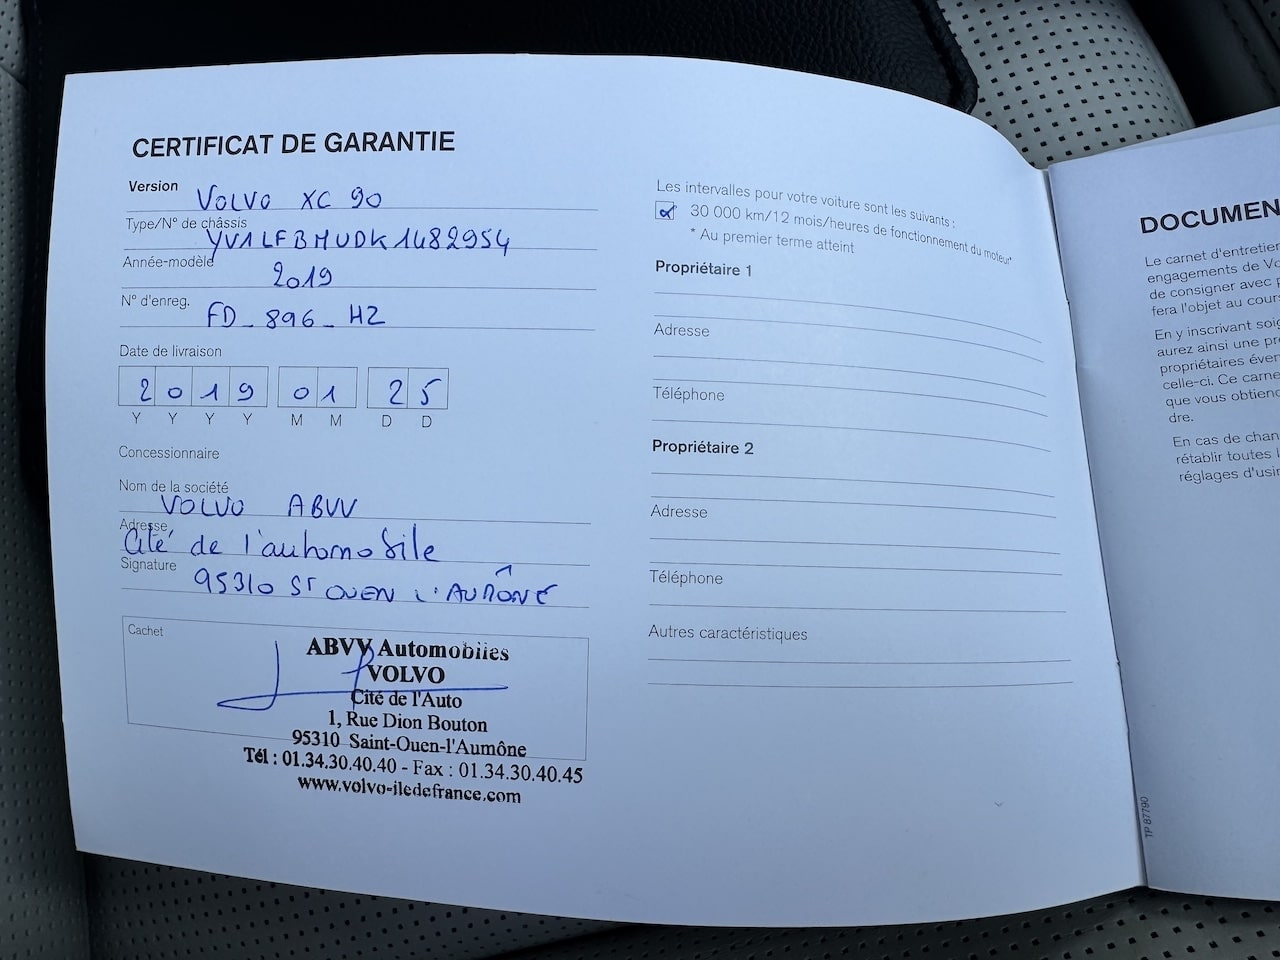 CERTIFICAT DE GARANTIE
Version VOLVO XC 90
Type/N° de châssis YV1LFBMUDK1482954
Année-modèle 2019
N° d'enreg. FD_896_HZ
Date de livraison
2 0 1 9 0 1 2 5
Y Y Y Y M M D D
Concessionnaire
Nom de la société VOLVO ABVV
Adresse Cité de l'automobile
Signature 95310 ST OUEN L'AUMÔNE
Cachet
ABVV Automobiles
VOLVO
Cité de l'Auto
1, Rue Dion Bouton
95310 Saint-Ouen-l'Aumône
Tél : 01.34.30.40.40 - Fax : 01.34.30.40.45
www.volvo-iledefrance.com
Les intervalles pour votre voiture sont les suivants :
30 000 km/12 mois/heures de fonctionnement du moteur*
* Au premier terme atteint
Propriétaire 1
Adresse
Téléphone
Propriétaire 2
Adresse
Téléphone
Autres caractéristiques
TP 87790
DOCUMEN
Le carnet d'entretien
engagements de Vo
de consigner avec p
fera l'objet au cours
En y inscrivant soig
aurez ainsi une pr
propriétaires éven
celle-ci. Ce carne
que vous obtienc
dre.
En cas de chan
rétablir toutes l
réglages d'usin